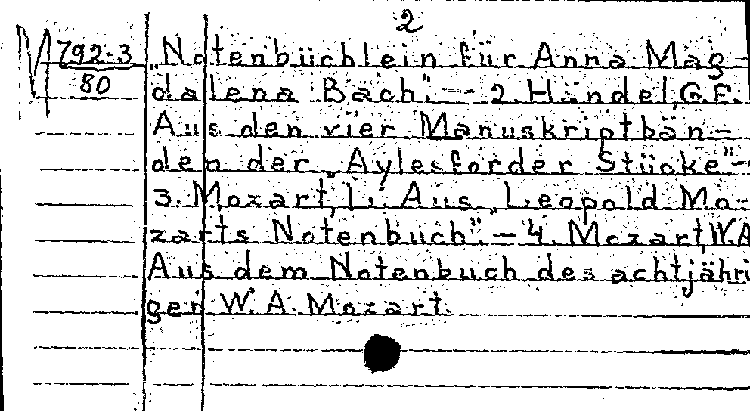 2
M 792-3
80
„Notenbüchlein für Anna Mag-
dalena Bach". - 2. Händel, G.F.
Aus den vier Manuskriptbän-
den der „Aylesforder Stücke" -
3. Mozart, L. Aus „Leopold Mo-
zarts Notenbuch". - 4. Mozart, W.A
Aus dem Notenbuch des achtjähri
gen W. A. Mozart.